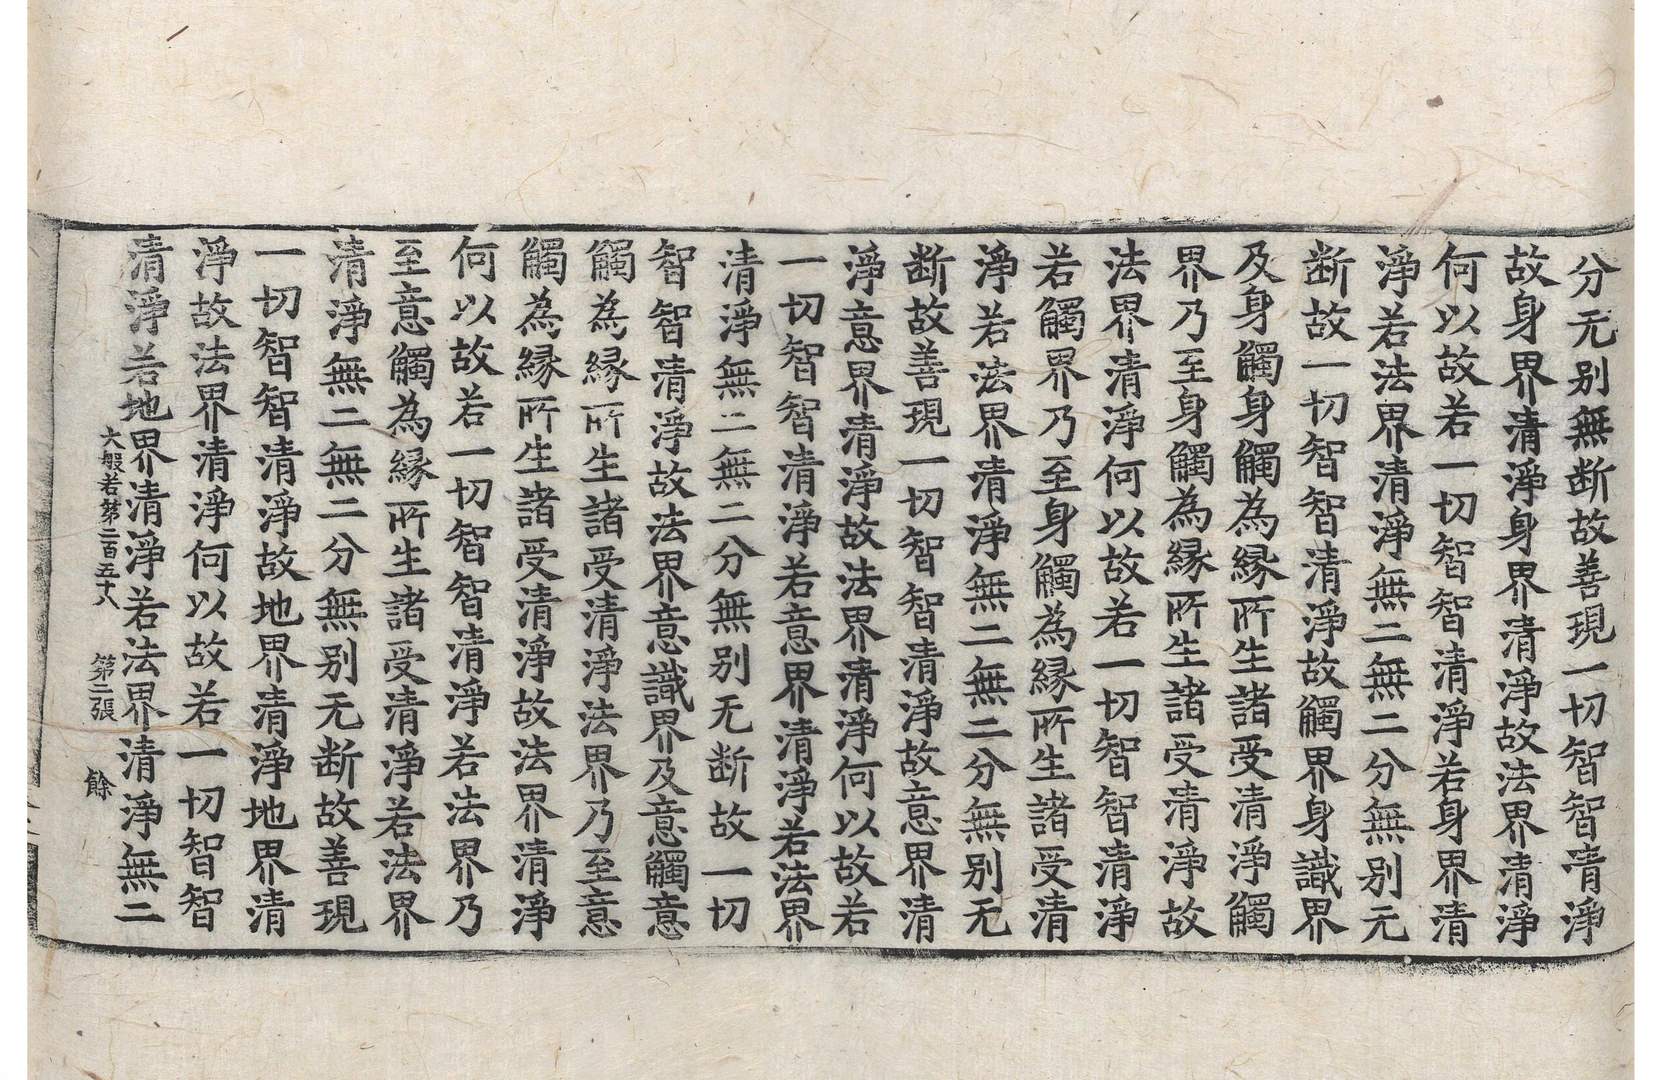 分无别無断故善現一切智智清淨
故身界清淨身界清淨故法界清淨
何以故若一切智智清淨若身界清
淨若法界清淨無二無二分無别无
断故一切智智清淨故觸界身識界
及身觸身觸為縁所生諸受清淨觸
界乃至身觸為縁所生諸受清淨故
法界清淨何以故若一切智智清淨
若觸界乃至身觸為縁所生諸受清
淨若法界清淨無二無二分無别无
断故善現一切智智清淨故意界清
淨意界清淨故法界清淨何以故若
一切智智清淨若意界清淨若法界
清淨無二無二分無别无断故一切
智智清淨故法界意識界及意觸意
觸為縁所生諸受清淨法界乃至意
觸為縁所生諸受清淨故法界清淨
何以故若一切智智清淨若法界乃
至意觸為縁所生諸受清淨若法界
清淨無二無二分無别无断故善現
一切智智清淨故地界清淨地界清
淨故法界清淨何以故若一切智智
清淨若地界清淨若法界清淨無二
大般若第二百五十八 第二張 餘